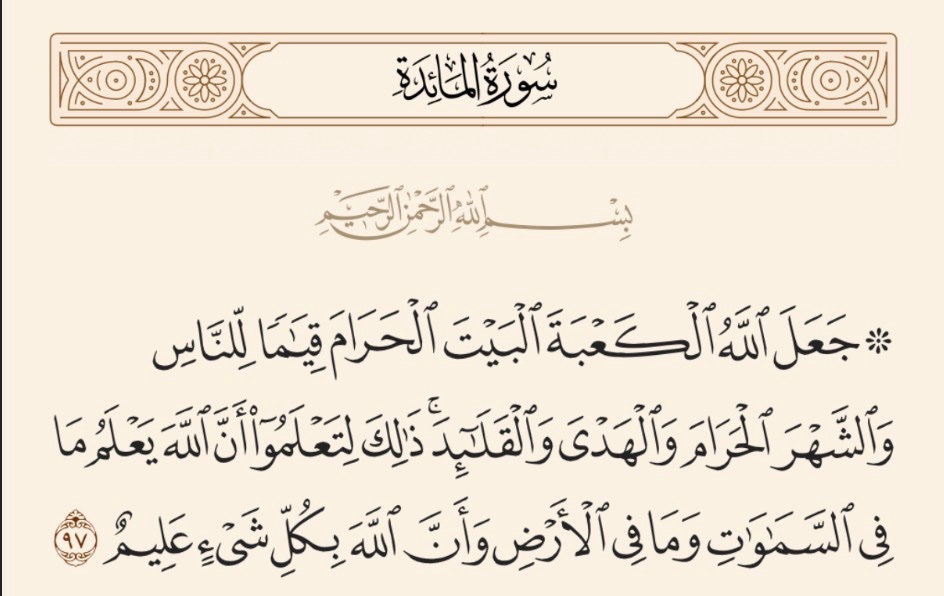 سُورَةُ المَائِدَةِ
بِسْمِ ٱللَّهِ ٱلرَّحْمَٰنِ ٱلرَّحِيمِ
۞ جَعَلَ ٱللَّهُ ٱلْكَعْبَةَ ٱلْبَيْتَ ٱلْحَرَامَ قِيَٰمًا لِّلنَّاسِ
وَٱلشَّهْرَ ٱلْحَرَامَ وَٱلْهَدْىَ وَٱلْقَلَٰٓئِدَۚ ذَٰلِكَ لِتَعْلَمُوٓا۟ أَنَّ ٱللَّهَ يَعْلَمُ مَا
فِى ٱلسَّمَٰوَٰتِ وَمَا فِى ٱلْأَرْضِ وَأَنَّ ٱللَّهَ بِكُلِّ شَىْءٍ عَلِيمٌ ٩٧